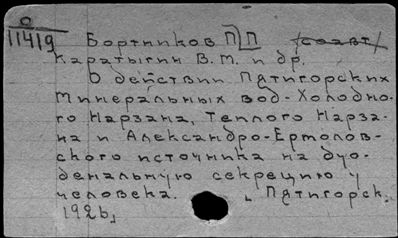 О
11419
Бортников П|П (соавт)
Каратыгин В.М. и др.
О действии Пятигорских
минеральных вод - Холодно-
го Нарзана, Теплого Нарза-
на и Александро-Ермолов-
ского источника на дуо-
денальную секрецию у
человека. Пятигорск.
1926,